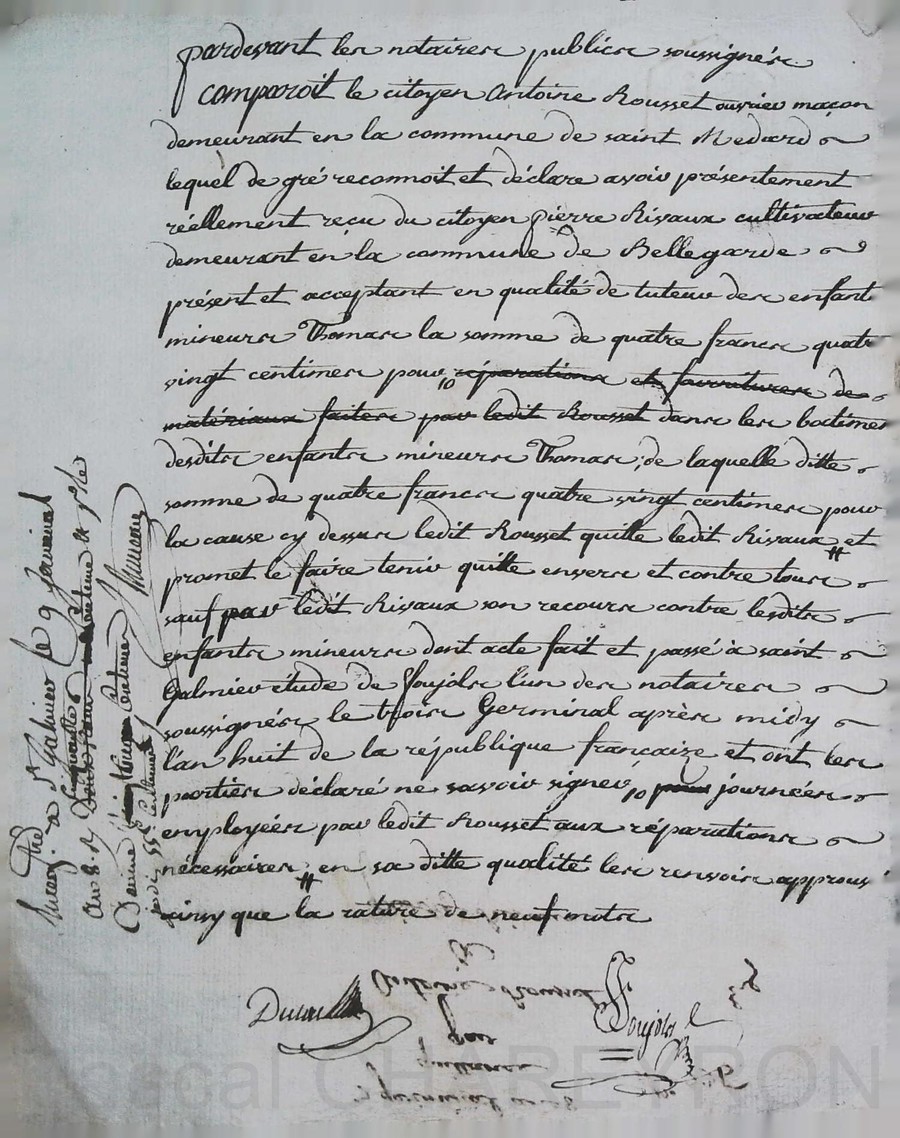 pardevant les notaires publics soussignés
comparoit le citoyen Antoine Rousset ouvrier maçon
demeurant en la commune de saint Medard
lequel de gré reconnoit et déclare avoir présentement
réellement reçu du citoyen pierre Rivaux cultivateur
demeurant en la commune de Bellegarde
présent et acceptant en qualité de tuteur des enfant
mineurs Thomas la somme de quatre francs quatr
vingt centimes pour réparations et fournitures de
matériaux faites par ledit Rousset dans les batimen
desdits enfants mineurs Thomas ; de laquelle ditte
somme de quatre francs quatre vingt centimes pour
la cause cy dessus ledit Rousset quitte ledit Rivaux et
promet le faire tenir quitte envers et contre tous
sauf par ledit Rivaux son recours contre lesdits
enfants mineurs dont acte fait et passé à saint
Galmier étude de Poujols l'un des notaires
soussignés le trois Germinal après midy
l'an huit de la république françaize et ont les
parties déclaré ne savoir signer, journées
employées par ledit Rousset aux réparations
nécessaires ; # en sa ditte qualité les renvois approuv
ainsy que la rature de neuf mots
Enreg. à St Galmier le 9 Germinal
an 8.
Poujols
Antoine Rousset
par
quittance
germinal an 8